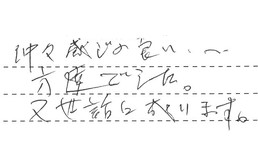 中々感じの良い、
方達でした。
又世話になります。